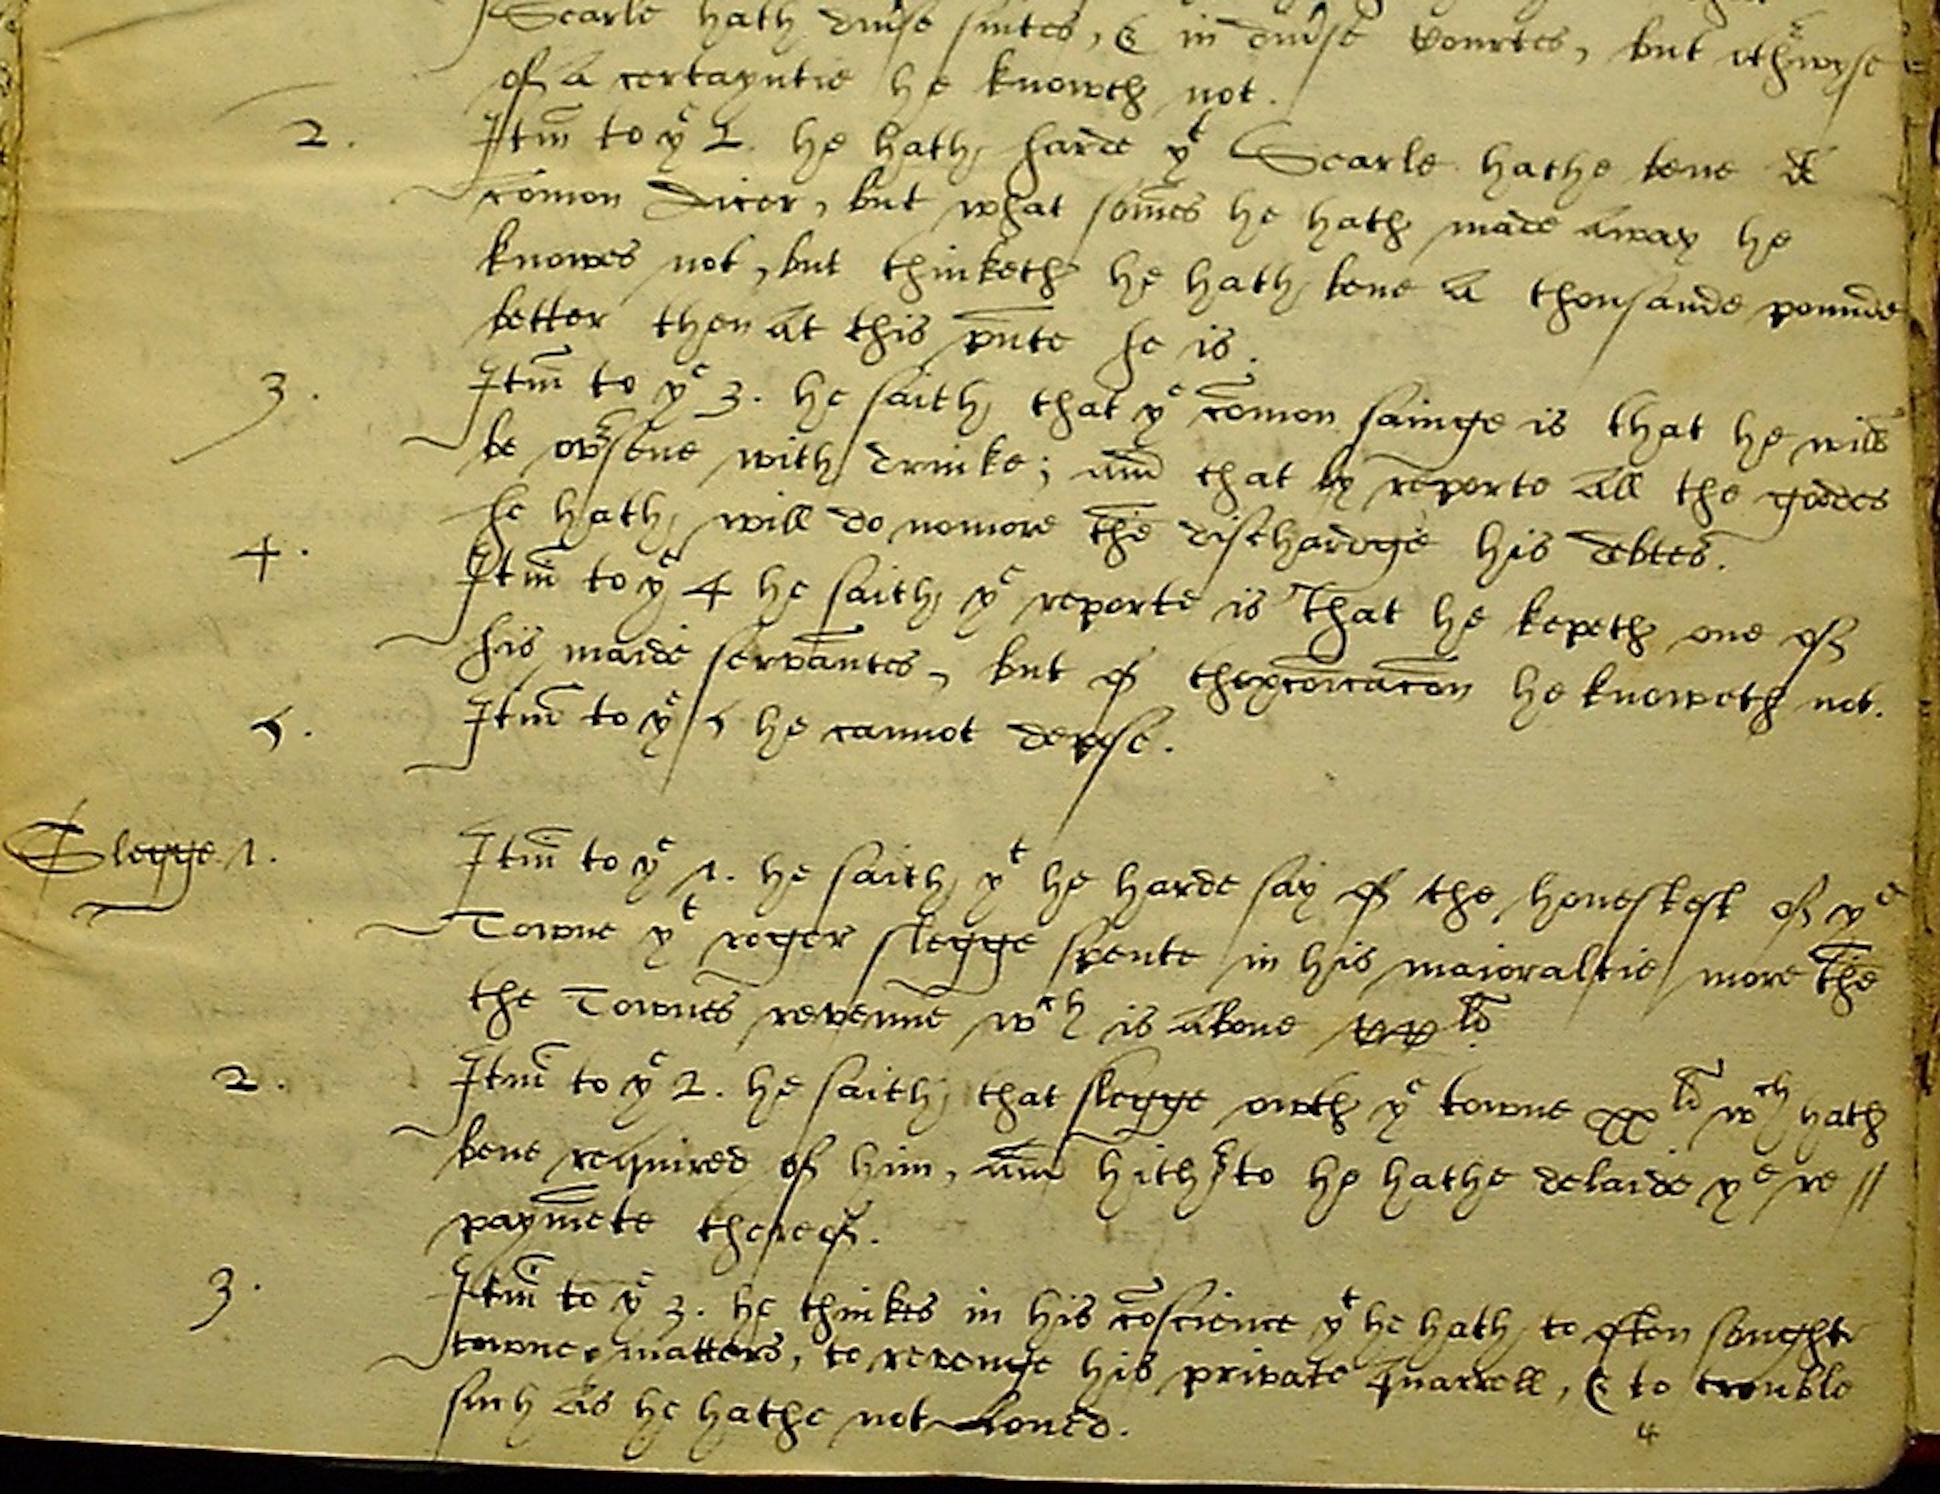 Scarle hath diuse suites, & in diuse Courtes, but othwyse
of a certayntie he knowth not.
2. Itm to ye 2. he hath harde yt Scarle hathe bene a
comon Dicer, but what somes he hath made away he
knowes not, but thinketh he hath bene a thousande pounde
better then at this pnte he is.
3. Itm to ye 3. he saith that ye comon sainge is that he wille
be ovsene with drinke; and that by reporte all the goodes
he hath will do nomore the dischardge his debtes.
4. Itm to ye 4 he saith ye reporte is that he kepeth one of
his maide servantes, but of he knoweth not.
5. Itm to ye 5 he cannot depose.
Slegge 1. Itm to ye 1. he saith yt he harde say of the honestest of ye
Towne yt roger slegge spente in his maioraltie more the
the Townes revenue wch is aboue li
2. Itm to ye 2. he saith that slegge owth ye towne xx li wch hath
bene required of him, and hithto he hathe delaide ye re//
paymete thereof.
3. Itm to ye 3. he thinkes in his coscience yt he hath to often sought
towne matters, to revenge his private quarrell, & to trouble
such as he hathe not loued.
4